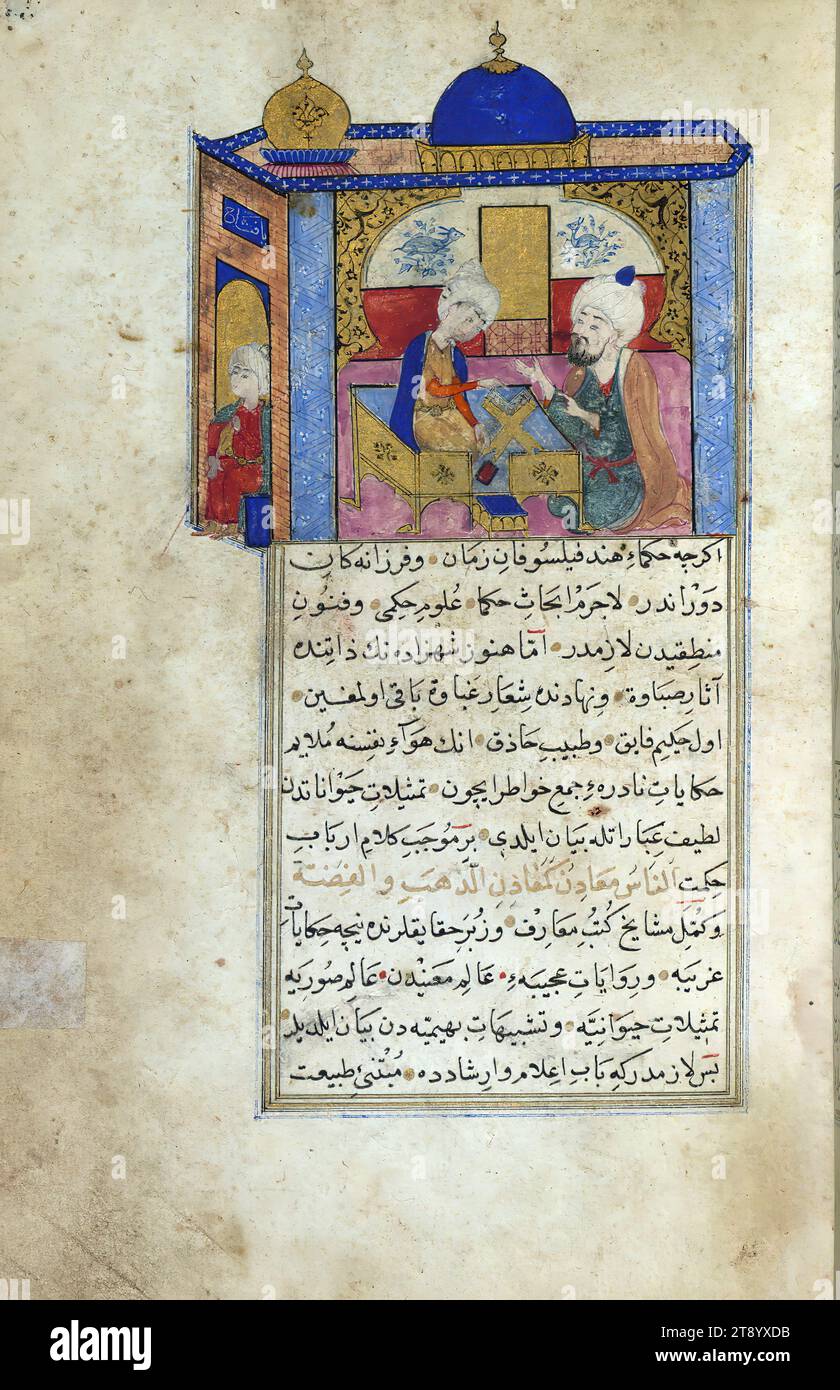 يا فتاح
اگرچه حكماءِ هند فيلسوفانِ زمان وفرزانه كان
دوراندر لاجرم ابحاثِ حكما علومِ حكمى وفنونِ
منطقيدن لازمدر امّا هنوز شهزاده نك ذاتنده
آثارِ صباوة ونهادنده شعارِ غباوة باقى اولمغين
اول حكيم فايق وطبيبِ حاذق انك هوآءِ نفسنه ملايم
حكاياتِ نادرهءِ جمعِ خواطر ايچون تمثيلاتِ حيواناتدن
لطيف عباراتله بيان ايلدى بر موجبِ كلامِ اربابِ
حكمت الناسُ معادِن كمعادِنِ الذّهبِ والفِضّة
وكمّلِ مشايخ كتبِ معارف وزبرِ حقايقلرنده نيچه حكاياتِ
غريبه ورواياتِ عجيبهءِ عالمِ معنيدن عالمِ صوريه
تمثيلاتِ حيوانيّه وتشبيهاتِ بهيميّه دن بيان ايلديلر
بس لازمدركه بابِ اعلام وارشادده مبتنئِ طبيعت
alamy
Image ID: 2T8YXDB
www.alamy.com